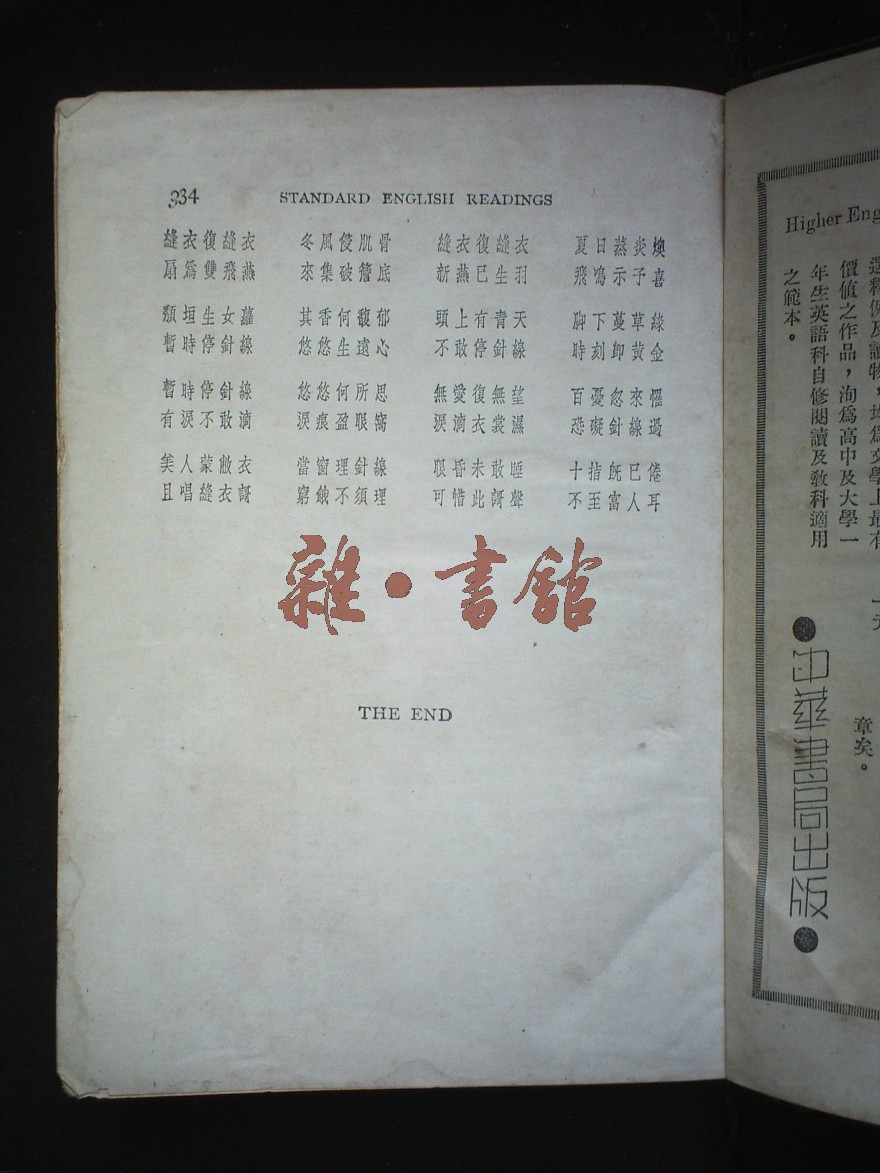 334 STANDARD ENGLISH READINGS
縫衣復縫衣 冬風侵肌骨 縫衣復縫衣 夏日蒸炎燠
扇爲雙飛燕 來集破簷底 新燕已生羽 飛鳴示予喜
頹垣生女蘿 其香何馥郁 頭上有青天 脚下蔓草綠
暫時停針線 悠悠生遠心 不敢停針線 時刻卽黃金
暫時停針線 悠悠何所思 無愛復無望 百憂忽來懼
有淚不敢滴 淚痕盈眼窩 淚滴衣裳濕 恐礙針線過
美人蒙敝衣 當窗理針線 眼昏未敢睡 十指旣已倦
且唱縫衣謌 窮餓不須理 可惜此謌聲 不至富人耳
雜•書館
THE END
Higher Eng
選釋例及讀物，均爲文學上最有
價值之作品，洵爲高中及大學一
年生英語科自修閱讀及敎科適用
之範本。
章矣。
中華書局出版